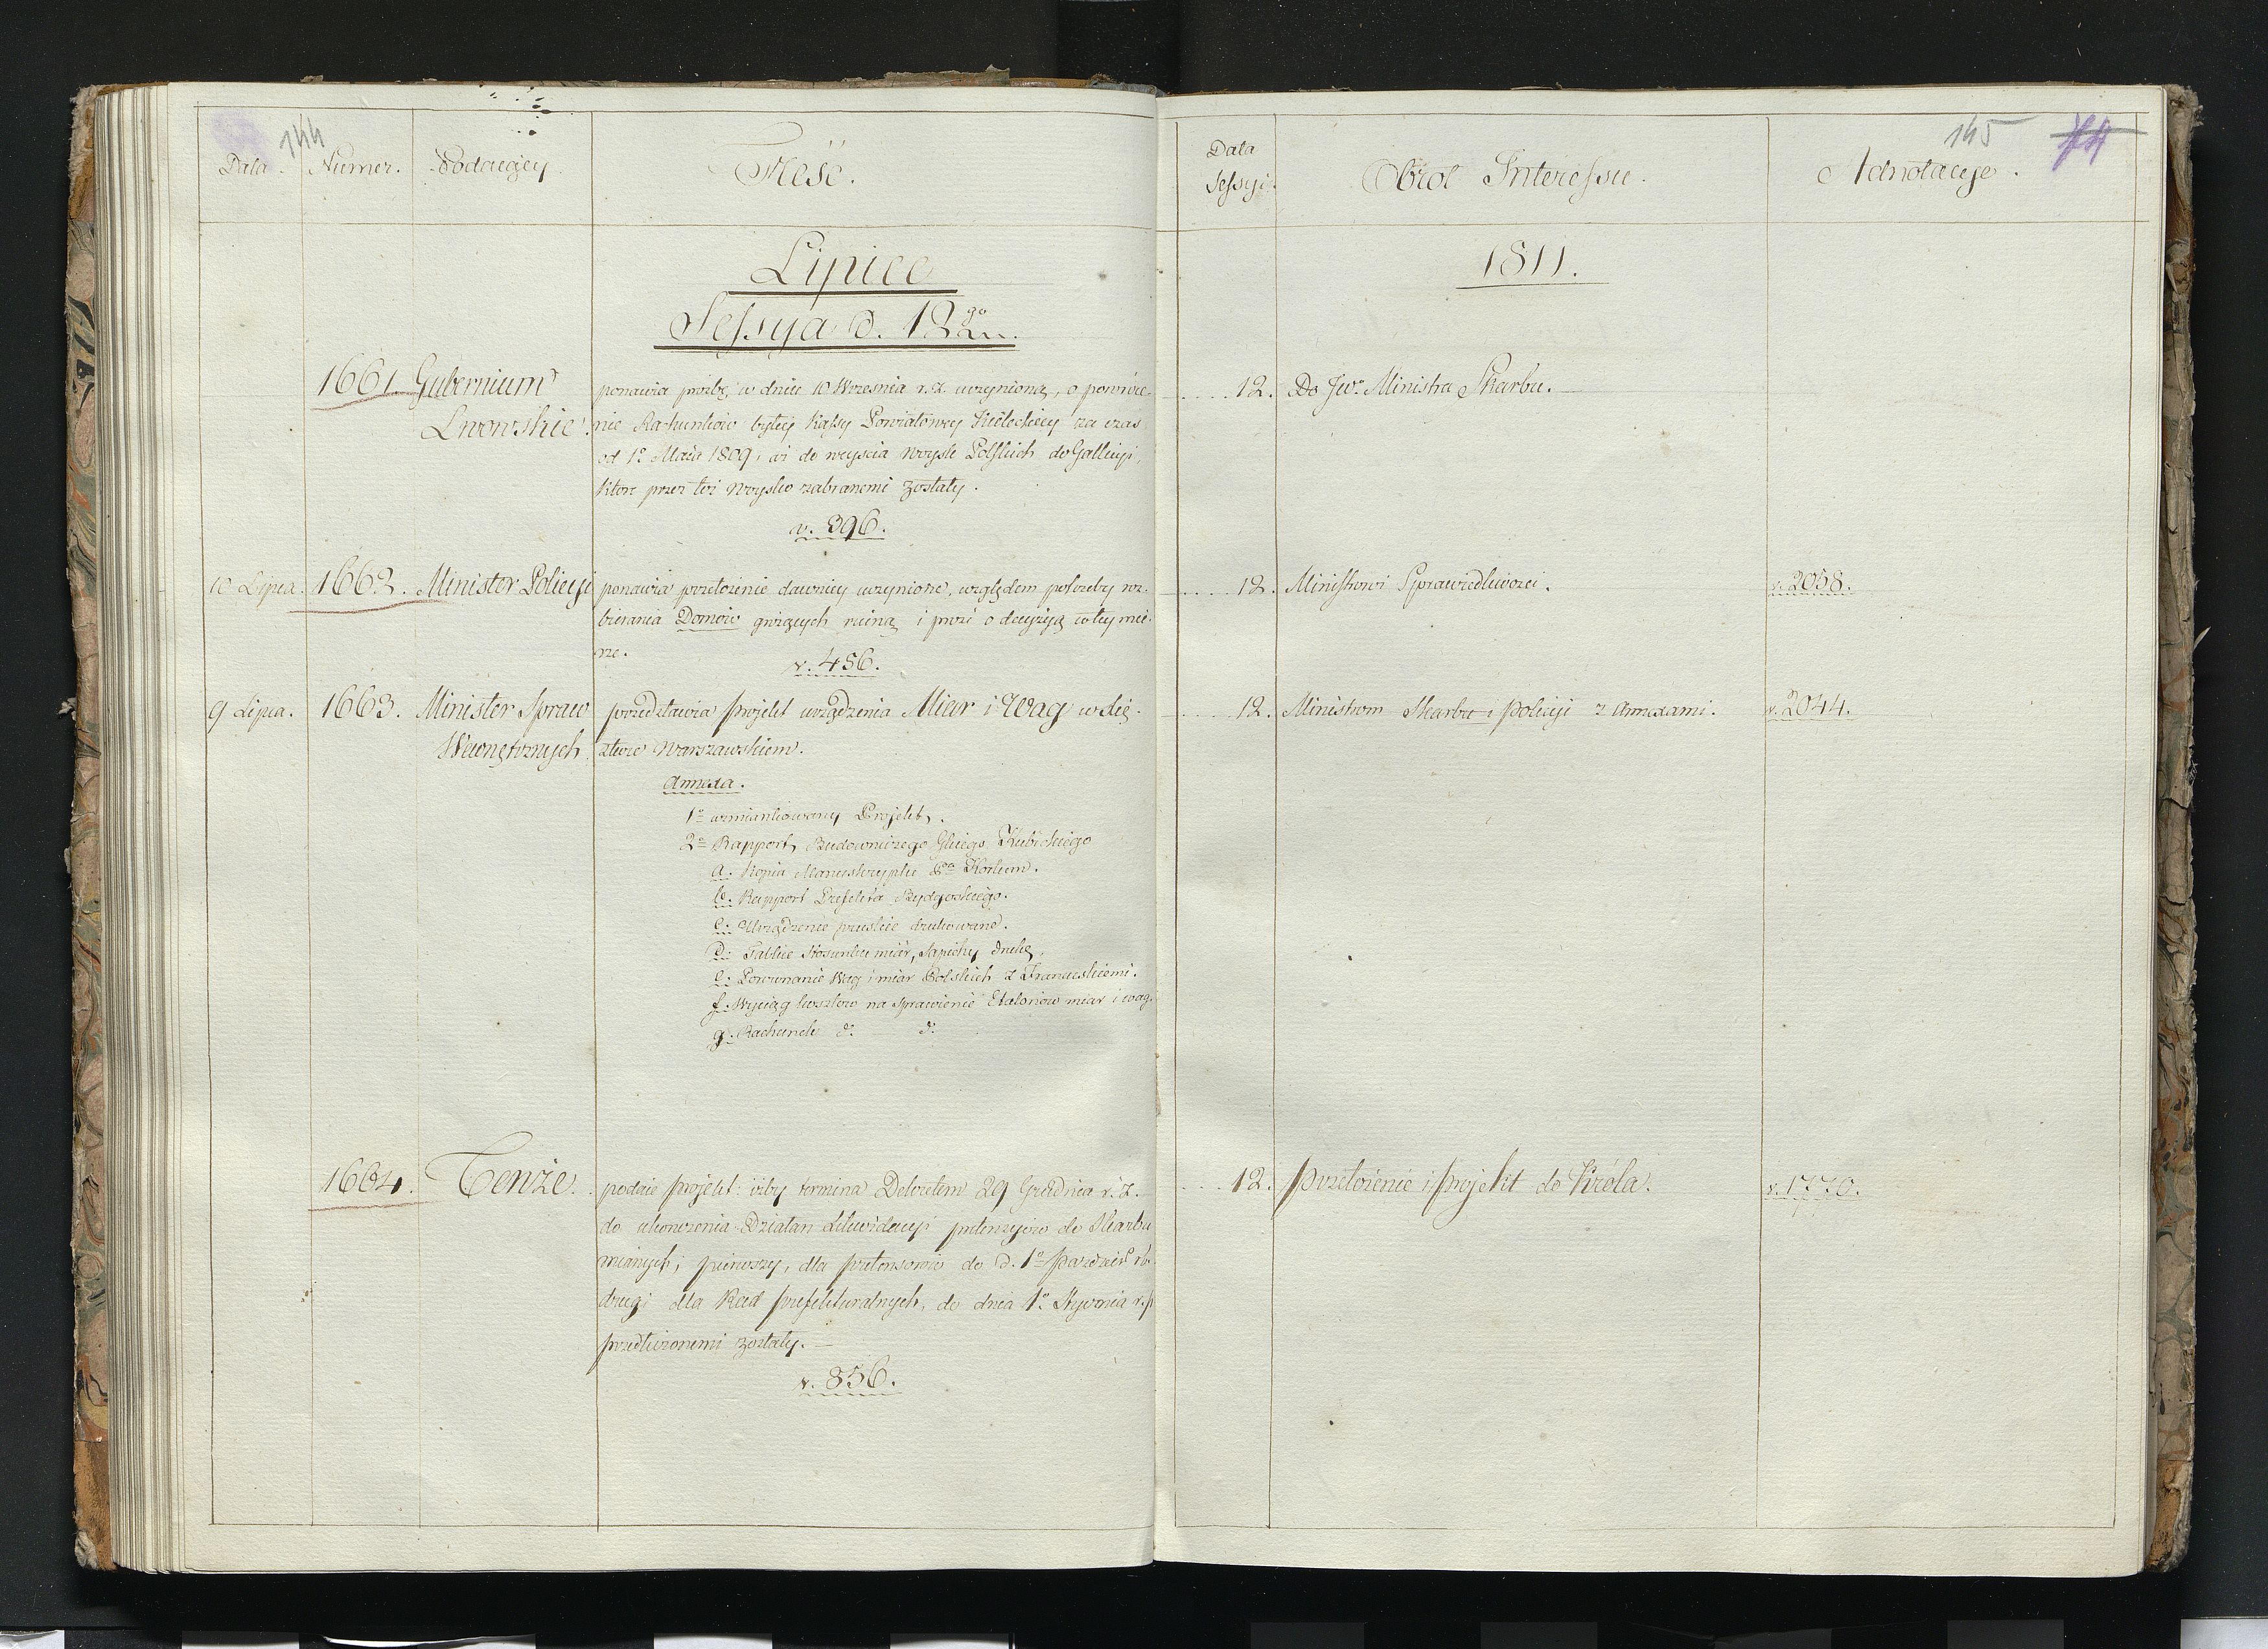 144
Data. Numer. Podaiący. Treść.
Lipiec
Sessya d. 12go
1661. Gubernium ponawia proźbę w dniu 10 Wrzesnia r. z. uczynioną, o powróce-
Lwowskie. nie Rachunków byłey Kassy Powiatowey Kieleckiey za czas
od 1o Maia 1809, aż do weyscia woysk Polskich do Gallicyi,
które przez toż woysko zabranemi zostały.
v. 396.
10 Lipca. 1662. Minister Policyi ponawia przełożenie dawniey uczynione, względem potrzeby roz-
bierania Domów grożących ruiną i prosi o decyzyą w tey mie-
rze.
v. 456.
9 Lipca. 1663. Minister Spraw przedstawia projekt urządzenia Miar i Wag w Xię-
Wewnętrznych. ztwie Warszawskiem.
Annexa.
1o wzmiankowany Projekt.
2o Rapport Budowniczego Glnego Kubickiego
a. Kopia Manuskryptu Kortum.
b. Rapport Prefekta Bydgoskiego.
c. Urządzenie pruskie drukowane.
d. Tablice stosunku miar, Sapiehy druk.
e. Porownanie Wag i miar Polskich z Francuskiemi.
f. Wyciąg kosztow na sprawienie Etalonów miar i wag.
g. Rachunek do. do.
1664. Tenże. podaie projekt: iżby termina Dekretem 29 Grudnia r. z.
do ukonczenia Działan Likwidacyi pretensyiow do Skarbu
mianych; pierwszy, dla pretensorów do d. 1o Pazdzier. rb.
drugi dla Rad prefekturalnych, do dnia 1o Stycznia r. p
przedłużonemi zostały.
v. 856.
145
74
Data Sessyi. Obrot Interessu. Adnotacye.
1811.
12. Do Jwo Ministra Skarbu.
12. Ministrowi Sprawiedliwosci. v. 2058.
12. Ministrom Skarbu i Policyi z Annexami. v. 2044.
12. Przełożenie i projekt do Króla. v. 1770.